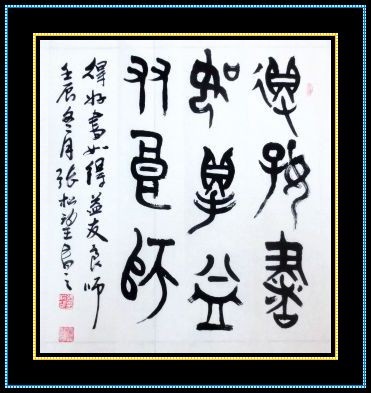 得好書
如得益
友良師
得好書如得益友良師
壬辰冬月張松望書之